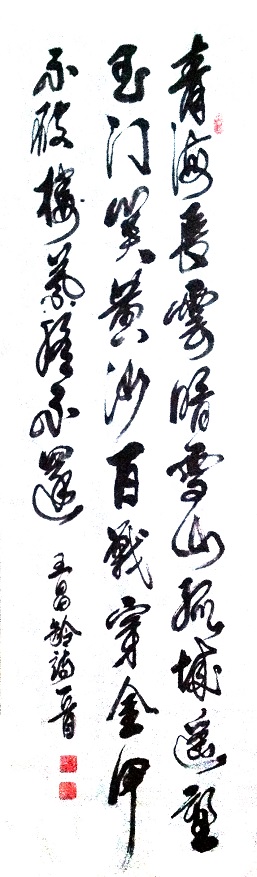 青海長雲暗雪山孤城遥望
玉门关黄沙百戰穿金甲
不破樓蘭終不還
王昌齡詩一首